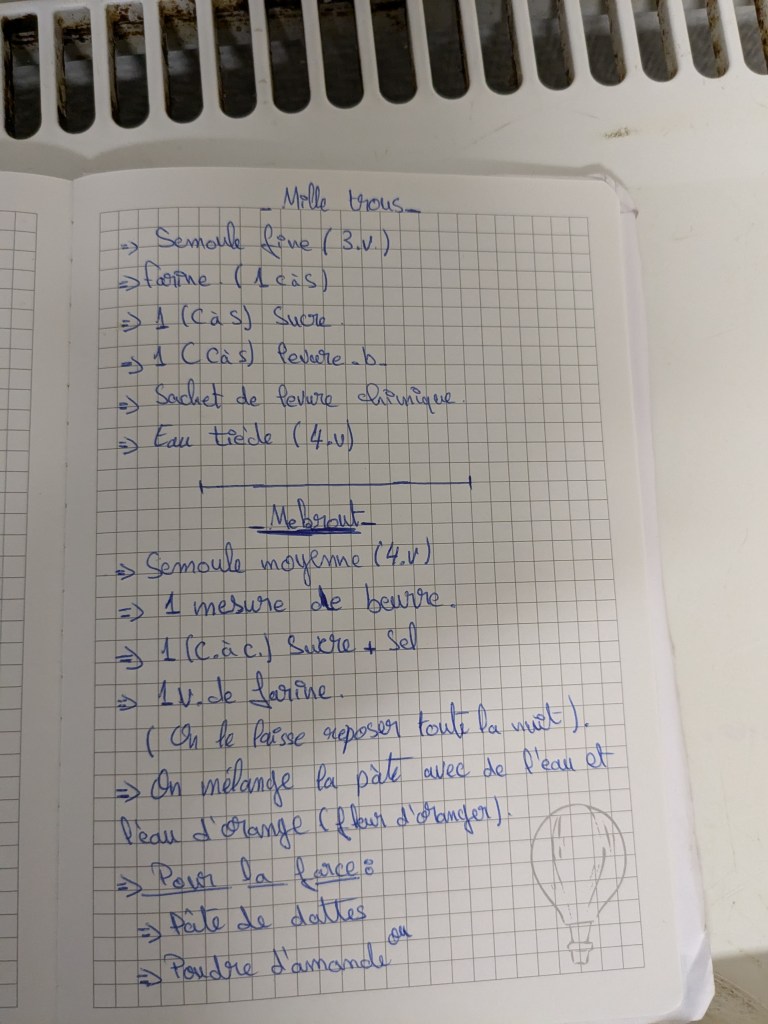 _ Mille trous _
=> Semoule fine (3.v.)
=> farine. (1 càs)
=> 1 (càs) Sucre
=> 1 (càs) levure-b-
=> Sachet de levure chimique.
=> Eau tiède (4.v)
_ Mebrout _
=> Semoule moyenne (4.v)
=> 1 mesure de beurre.
=> 1 (c.àc.) Sucre + Sel
=> 1 v. de farine.
( On le laisse reposer toute la nuit).
=> On mélange la pàte avec de l'eau et
l'eau d'orange (fleur d'oranger).
=> Pour la farce :
=> Pâte de dattes
=> Poudre d'amande ou